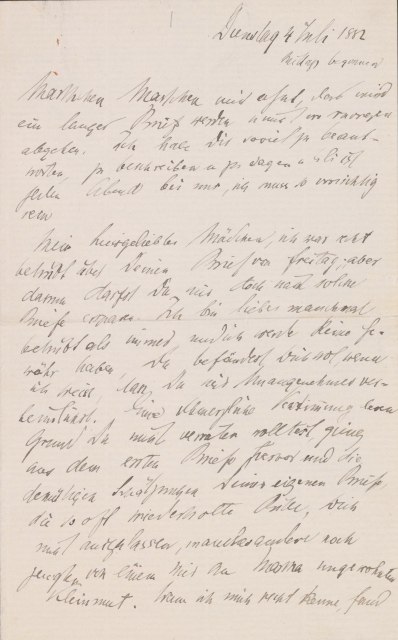 Dienstag 4 Juli 1882
Mittags begonnen
Marthchen Marthchen mir ahnt, das wird
ein langer Brief werden u
abgehen. Ich habe Dir soviel zu beant-
worten, zu beschreiben u zu sagen u Elise
jeden Abend bei mir, ich muss so vorsichtig
sein
Mein heissgeliebtes Mädchen, ich war recht
betrübt über Deinen Brief von Freitag; aber
darum darfst Du mir doch nicht solche
Briefe ersparen. Ich bin lieber manchmal
betrübt als immer, und ich werde keine Ge-
währ haben, Du befändest Dich wol, wenn
ich weiss, dass Du mir Unangenehmes ver-
heimlichst. Eine Verstimmung deren
Grund Du nicht verraten wolltest ging
aus dem ersten Briefe hervor und die
demütigen Schätzungen Deiner eigenen Briefe
die so oft wiederholte Bitte, Dich
nicht auszulassen, manches andere noch
zeugten von einem mir an Martha ungewohnten
Kleinmut. Wenn ich mich recht kenne, fand